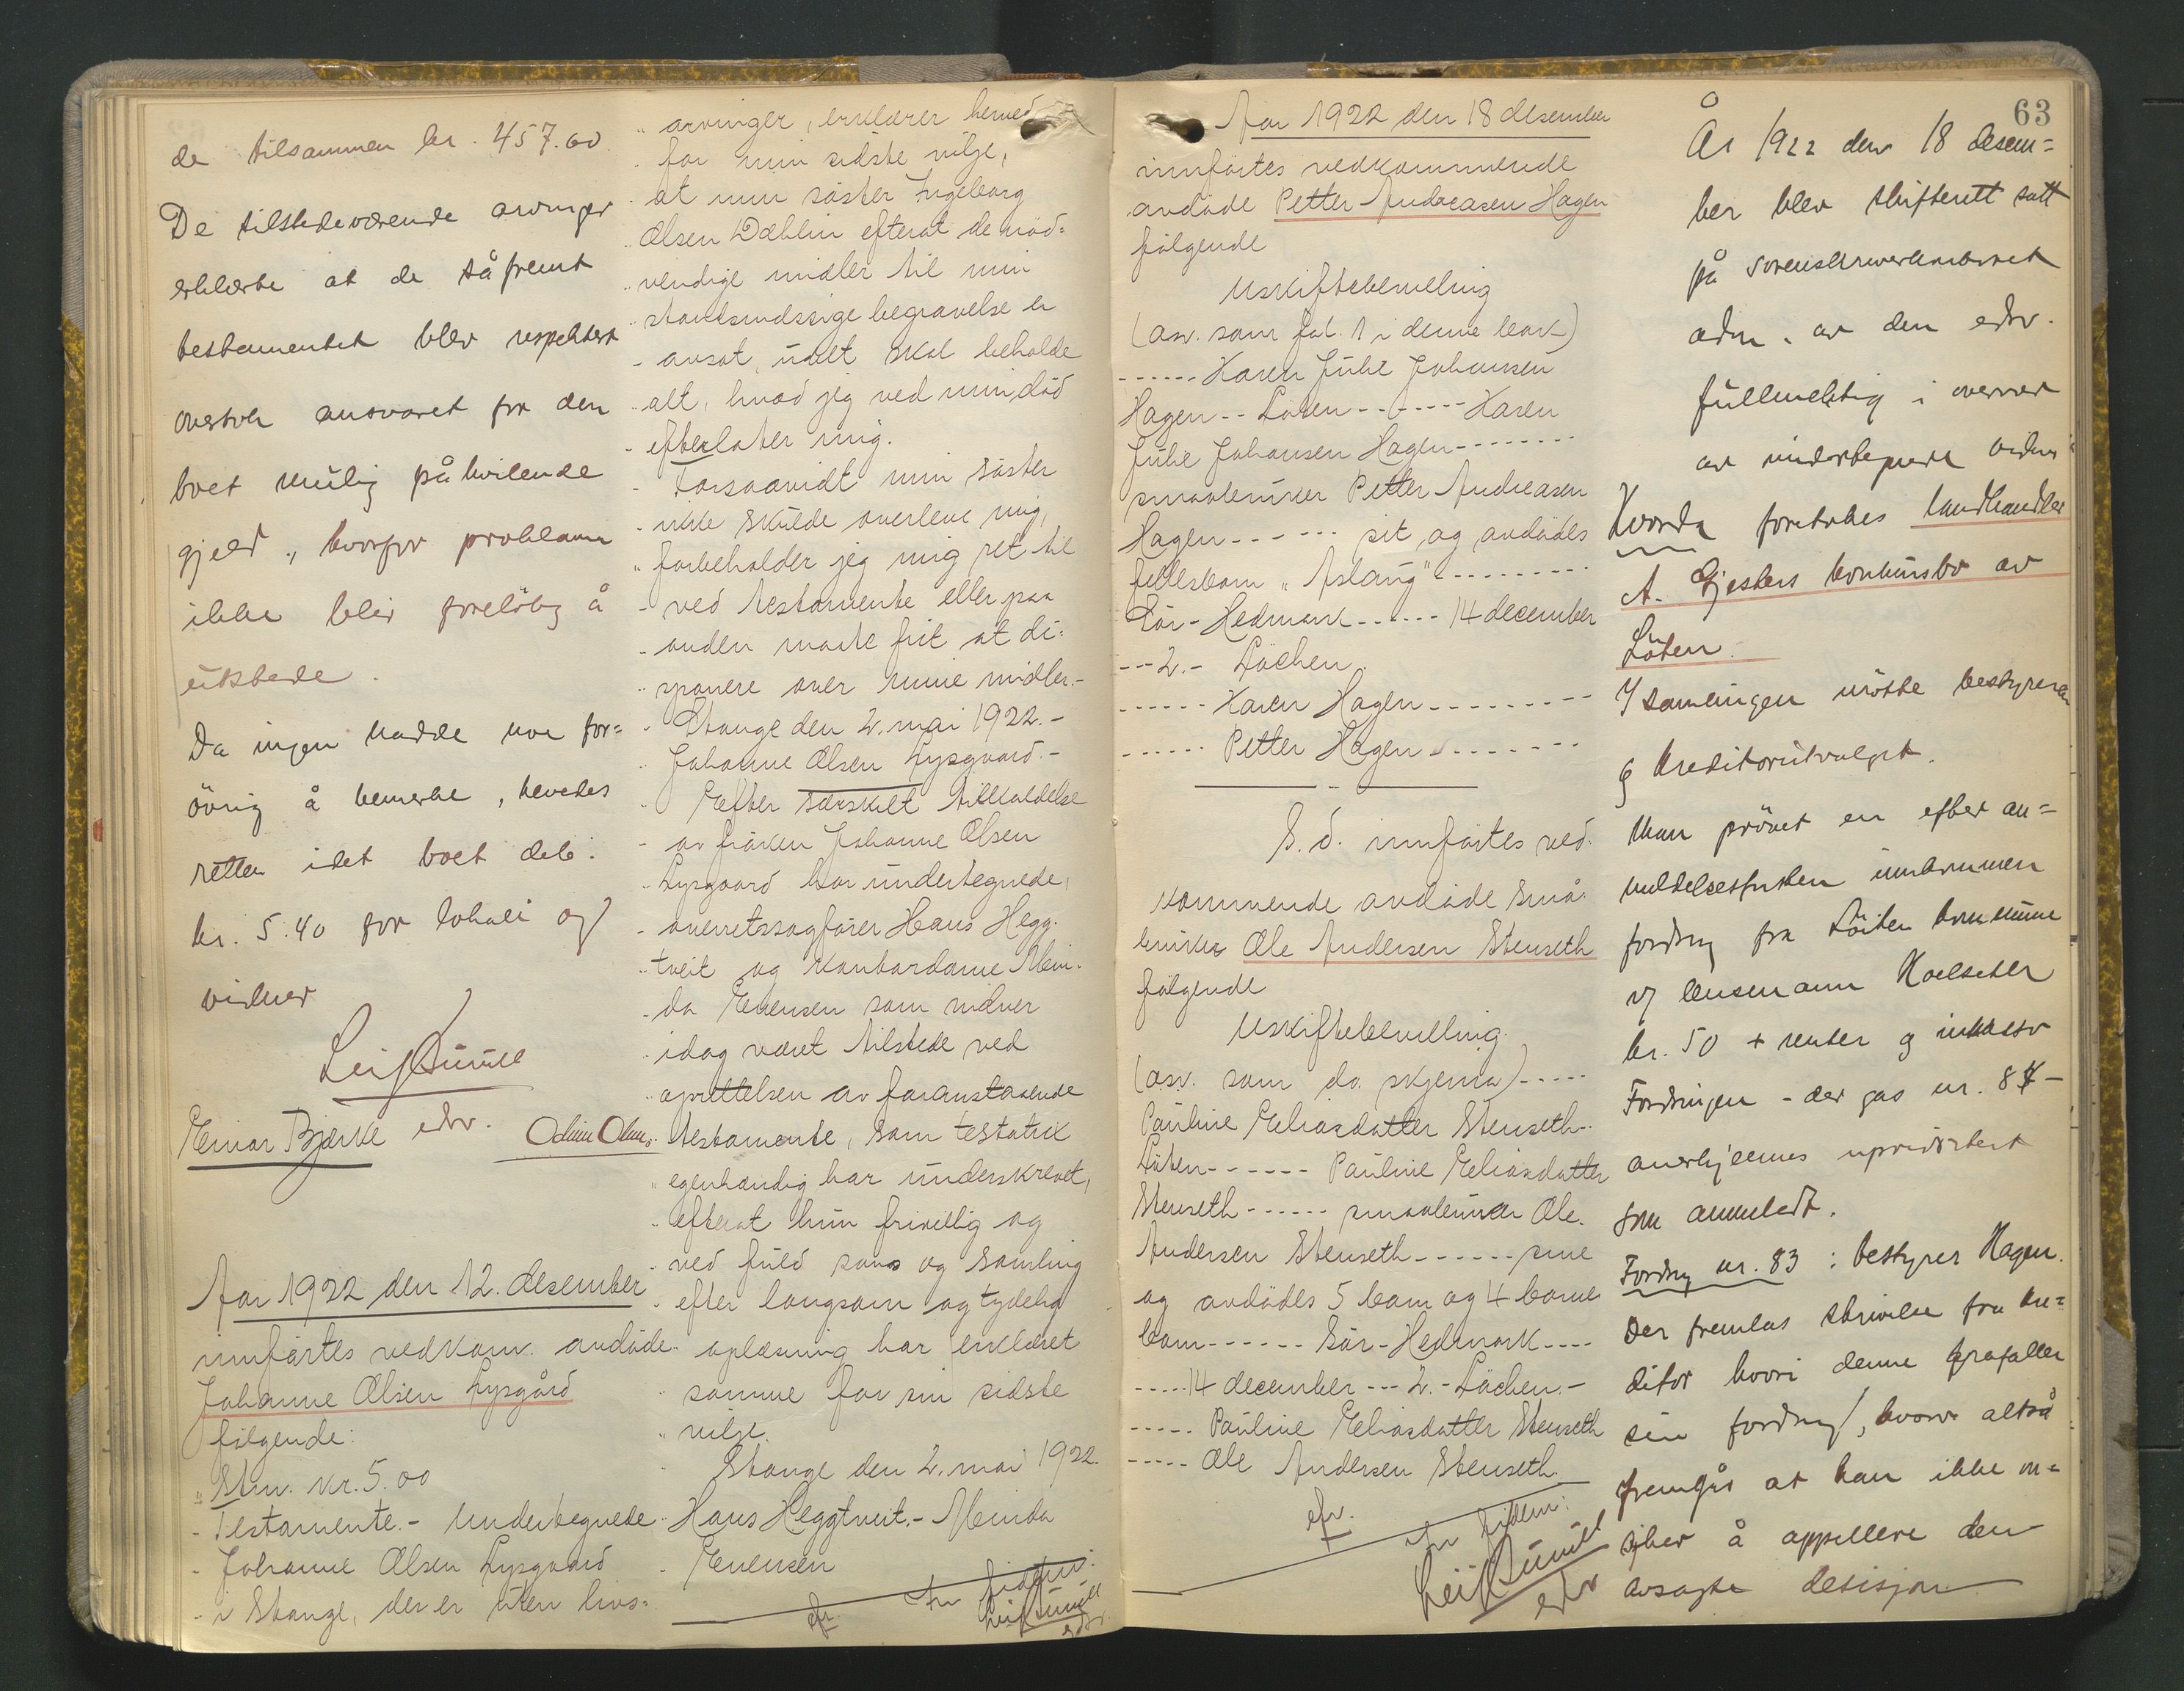 de tilsammen kr. 457.60.
De tilstedeværende arvinger
erklærte at de såfremt
testamentet blev respektert
overtok ansvaret for den
boet mulig påhvilende
gjeld, hvorfor proklama
ikke blir foreløbig å
utstede.
Da ingen hadde noe for=
øvrig å bemerke, hevedes
retten idet boet deb.
kr. 5.40 for lokale og
vidner
Einar Bjerke edv. Odin Olsen
Aar 1922 den 12. desember
innførtes vedkom. avdøde
Johanne Olsen Lysgård
følgende:
"Stm. kr. 5.00
- Testamente. - Undertegnede
- Johanne Olsen Lysgaard
- i Stange, der er uten livs=
" arvinger, erklærer herved
- for min sidste vilje,
- at min søster Ingeborg
" Olsen Dæhlin efterat de nød=
" vendige midler til min
" standsmæssige begravelse er
- avsat, udelt skal beholde
- alt, hvad jeg ved min død
- efterlater mig.
- Forsaavidt min søster
- ikke skulde overleve mig,
" forbeholder jeg mig ret til
- ved testamente eller paa
- anden maate frit at di=
" sponere over mine midler.-
- Stange den 2. mai 1922.-
" Johanne Olsen Lysgaard.-
" Efter særskilt tilkaldelse
- av frøken Johanne Olsen
- Lysgaard har undertegnede,
- overretssagfører Hans Hegg-
- tveit og kontordame Min-
- da Evensen som vidner
- idag været tilstede ved
" oprettelsen av foranstaaende
- testamente, som testatrix
" egenhændig har underskrevet,
- efterat hun frivillig og
- ved fuld sans og samling
- efter langsom og tydelig
- oplæsning har erklæret
" samme for sin sidste
" vilje.
- Stange den 2. mai 1922.
- Hans Heggtveit.- Minda
- Evensen
Aar 1922 den 18 desember
innførtes vedkommende
avdøde Petter Andreasen Hagen
følgende
Uskiftebevilling
(asv. som fol. 1 i denne bok)
------ Karen Julie Johansen
Hagen -- Løten ------- Karen
Julie Johansen Hagen --------
smaabruker Petter Andreasen
Hagen ------ sit og avdødes
fellesbarn "Aslaug" ----------
Sør-Hedmark ------ 14 december
--- 2.- Løchen.
------ Karen Hagen ---------
------ Petter Hagen --------
S. d. innførtes ved-
kommende avdøde små-
bruker Ole Andersen Stenseth
følgende
Uskiftebevilling.
(asv. som do. skjema) -----
Pauline Eliasdatter Stenseth-
Løten ------ Pauline Eliasdatter
Stenseth ------ smaabruker Ole
Andersen Stenseth ------ sine
og avdødes 5 barn og 4 barne
barn ------ Sør-Hedmark ----
----- 14 december --- 2.- Løchen.-
----- Pauline Eliasdatter Stenseth
----- Ole Andersen Stenseth.
63
År 1922 den 18 desem=
ber blev skifterett satt
på sorenskriverkontoret
adm. av den edsv.
fullmektig i overvær
av undertegnede vidner
Hvorda foretokes landhandler
A. Gjesters konkursbo av
Løten.
I samlingen møtte bestyreren
og kreditorutvalget.
Man prøvet en efter an=
meldelsesfristen innkommen
fordring fra Løiten kommune
v/ lensmann Hoelseter
kr. 50 + renter og inkasso
Fordringen - der gas nr. 84 -
anerkjennes uprioritert
som anmeldt.
Fordring nr. 83: bestyrer Hagen.
Der fremlas skrivelse fra kre=
ditor hvori denne frafaller
sin fordring, hvorav altså
fremgår at han ikke øn=
sker å appellere den
avsagte desisjon